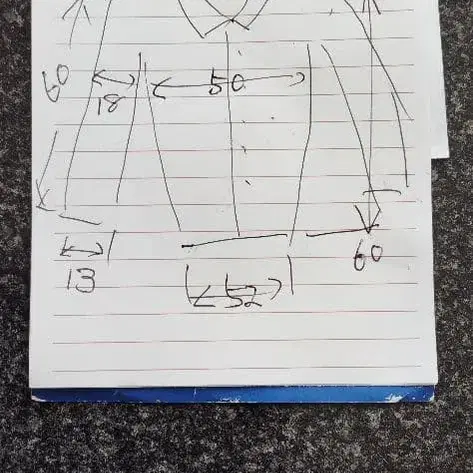 60
50
18
60
13
52